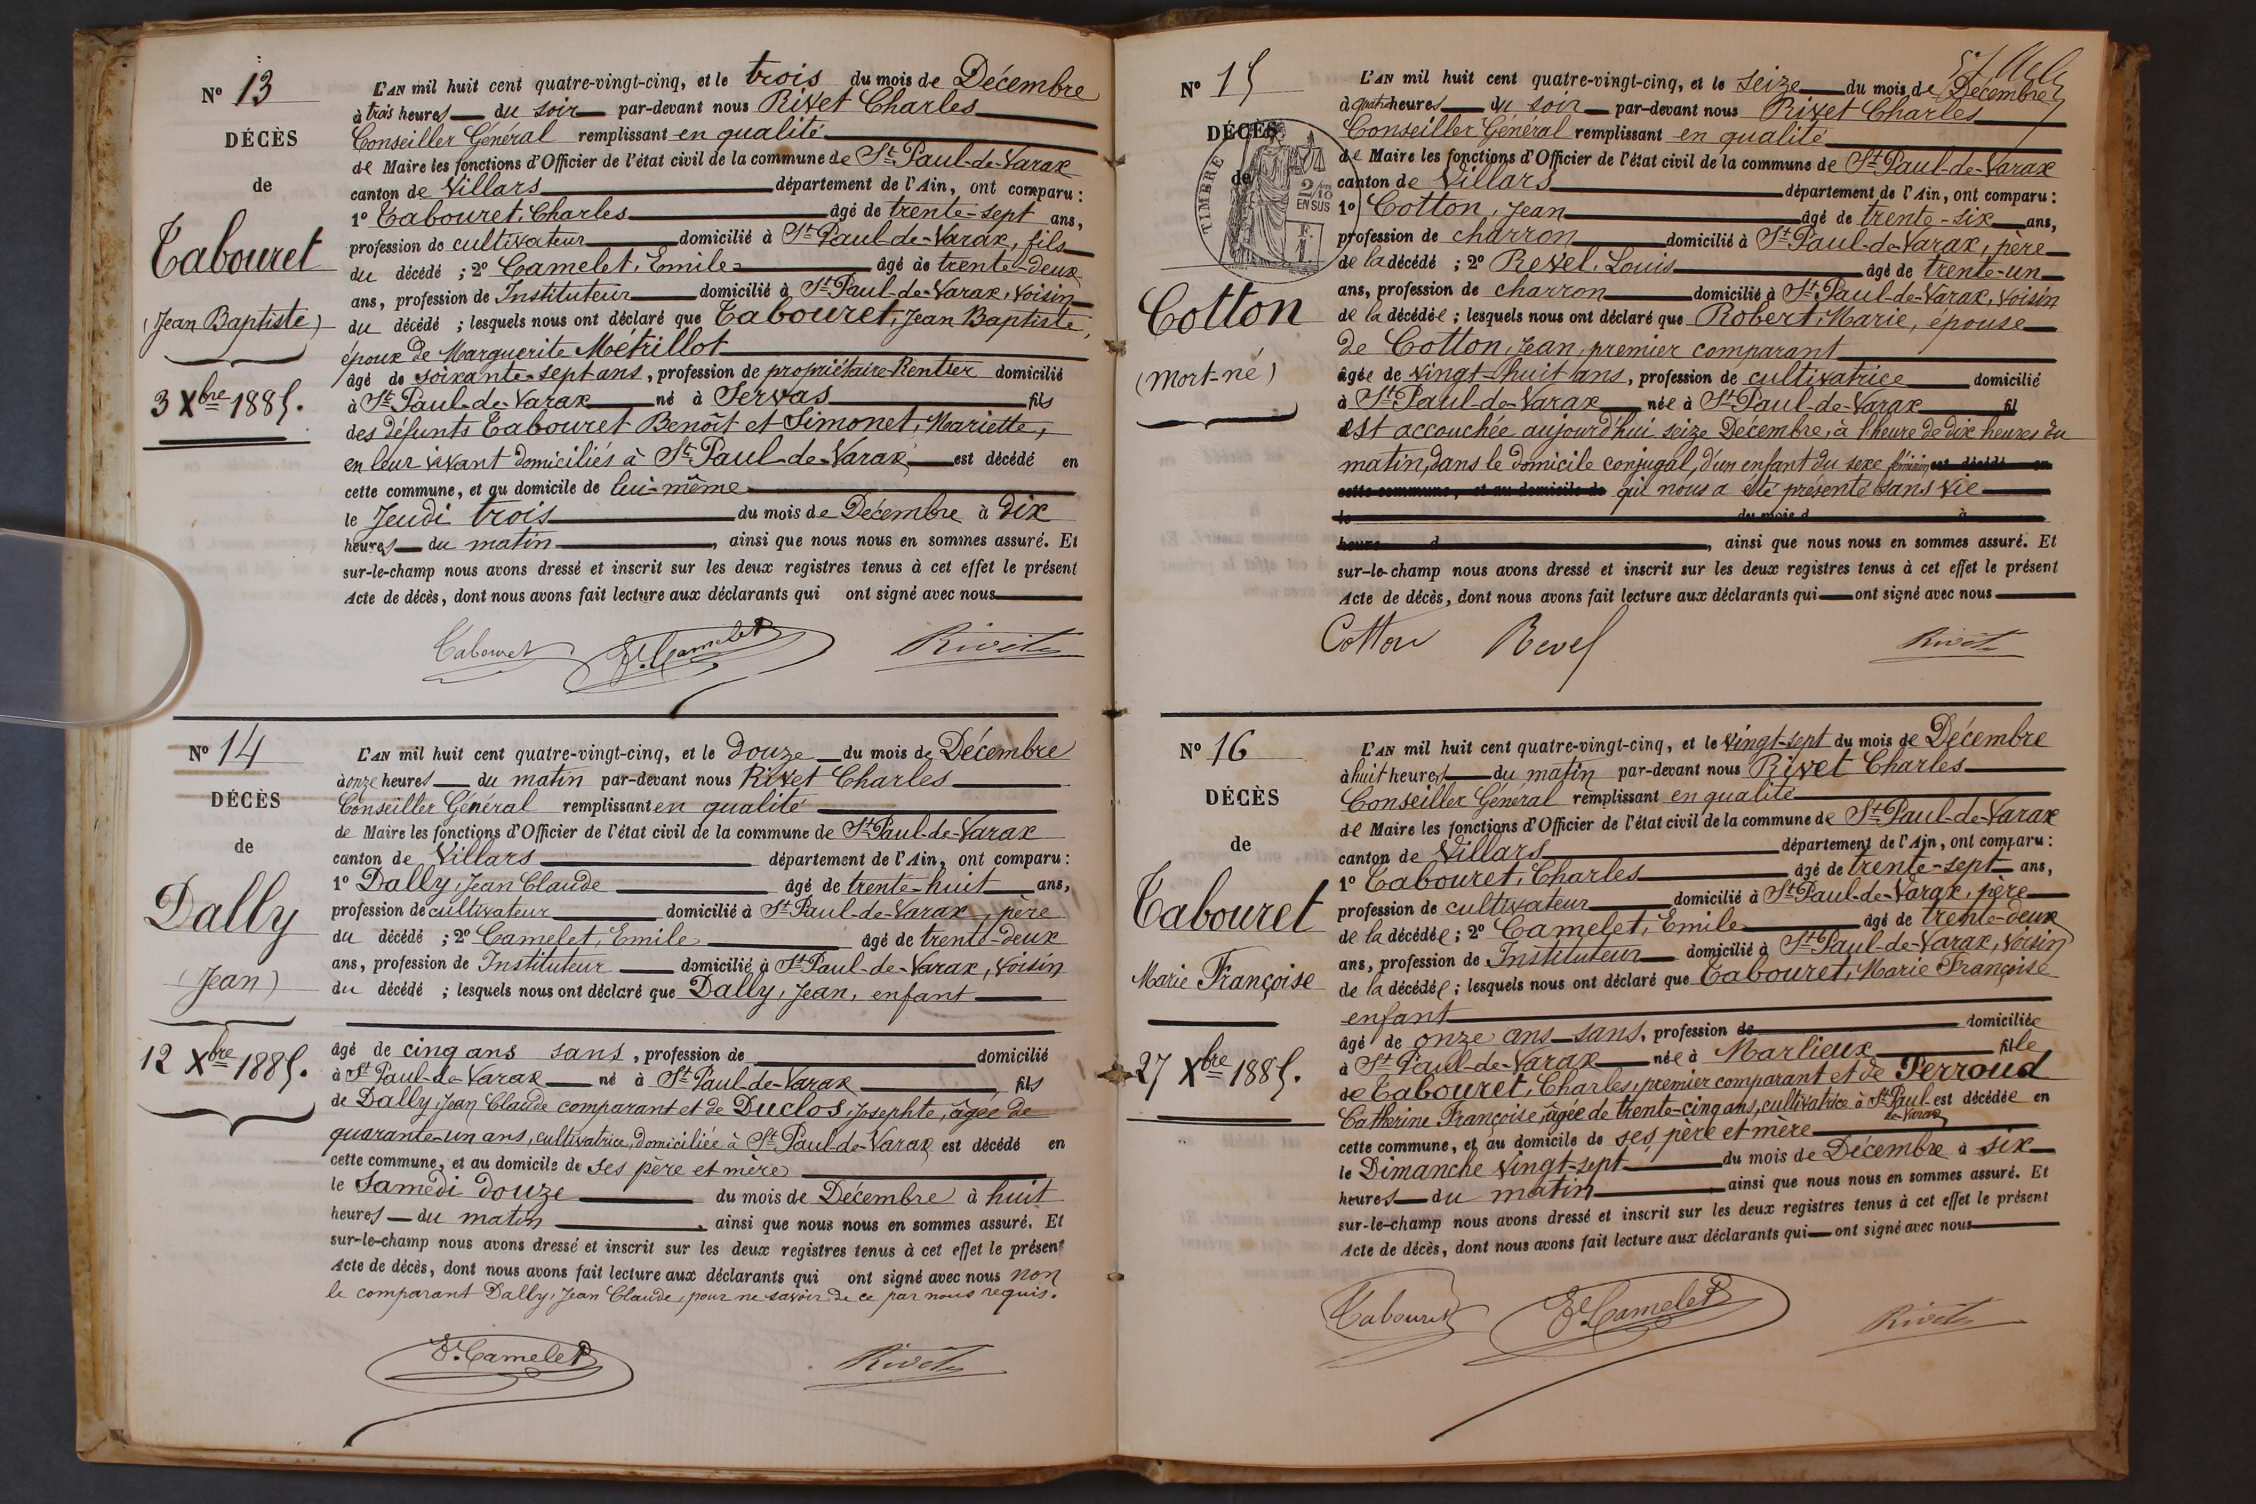 N° 13
DÉCÈS
de
Tabouret
(Jean Baptiste)
3 Xbre 1885.
L'AN mil huit cent quatre-vingt-cinq, et le trois du mois de Décembre
à trois heures du soir par-devant nous Rivet Charles
Conseiller Général remplissant en qualité
de Maire les fonctions d'Officier de l'état civil de la commune de St Paul-de-Varax
canton de Villars département de l'Ain, ont comparu :
1° Tabouret, Charles âgé de trente-sept ans,
profession de cultivateur domicilié à St Paul-de-Varax, fils
du décédé ; 2° Camelet, Emile âgé de trente-deux
ans, profession de Instituteur domicilié à St Paul-de-Varax, voisin
du décédé ; lesquels nous ont déclaré que Tabouret, Jean Baptiste,
époux de Marguerite Métrillot
âgé de soixante-sept ans, profession de propriétaire-Rentier domicilié
à St Paul-de-Varax né à Servas fils
des défunts Tabouret Benoît et Simonet, Mariette,
en leur vivant domiciliés à St Paul-de-Varax, est décédé en
cette commune, et au domicile de lui-même
le Jeudi trois du mois de Décembre à dix
heures du matin, ainsi que nous nous en sommes assuré. Et
sur-le-champ nous avons dressé et inscrit sur les deux registres tenus à cet effet le présent
Acte de décès, dont nous avons fait lecture aux déclarants qui ont signé avec nous
Tabouret E. Camelet Rivet
N° 14
DÉCÈS
de
Dally
(Jean)
12 Xbre 1885.
L'AN mil huit cent quatre-vingt-cinq, et le douze du mois de Décembre
à onze heures du matin par-devant nous Rivet Charles
Conseiller Général remplissant en qualité
de Maire les fonctions d'Officier de l'état civil de la commune de St Paul-de-Varax
canton de Villars département de l'Ain, ont comparu :
1° Dally, Jean Claude âgé de trente-huit ans,
profession de cultivateur domicilié à St Paul-de-Varax, père
du décédé ; 2° Camelet, Emile âgé de trente-deux
ans, profession de Instituteur domicilié à St Paul-de-Varax, voisin
du décédé ; lesquels nous ont déclaré que Dally, Jean, enfant
âgé de cinq ans sans, profession de domicilié
à St Paul-de-Varax né à St Paul-de-Varax fils
de Dally, Jean Claude comparant et de Duclos, Josephte, âgée de
quarante-un ans, cultivatrice, domiciliée à St Paul-de-Varax est décédé en
cette commune, et au domicile de ses père et mère
le Samedi douze du mois de Décembre à huit
heures du matin, ainsi que nous nous en sommes assuré. Et
sur-le-champ nous avons dressé et inscrit sur les deux registres tenus à cet effet le présent
Acte de décès, dont nous avons fait lecture aux déclarants qui ont signé avec nous non
le comparant Dally, Jean Claude, pour ne savoir de ce par nous requis.
E. Camelet Rivet
N° 15
DÉCÈS
de
TIMBRE
2/10
EN SUS
Cotton
(Mort-né)
L'AN mil huit cent quatre-vingt-cinq, et le seize du mois de Décembre
à quatre heures du soir par-devant nous Rivet Charles
Conseiller Général remplissant en qualité
de Maire les fonctions d'Officier de l'état civil de la commune de St Paul-de-Varax
canton de Villars département de l'Ain, ont comparu :
1° Cotton, Jean âgé de trente-six ans,
profession de charron domicilié à St Paul-de-Varax, père
de la décédé ; 2° Revel, Louis âgé de trente-un
ans, profession de charron domicilié à St Paul-de-Varax, voisin
de la décédée ; lesquels nous ont déclaré que Robert, Marie, épouse
de Cotton, Jean, premier comparant
âgée de vingt-huit ans, profession de cultivatrice domicilié
à St Paul-de-Varax née à St Paul-de-Varax fil
est accouchée aujourd'hui seize Décembre, à l'heure de dix heures du
matin, dans le domicile conjugal, d'un enfant du sexe féminin est décédé en
cette commune, et au domicile de qui nous a été présenté sans vie
le du mois d à
heure d, ainsi que nous nous en sommes assuré. Et
sur-le-champ nous avons dressé et inscrit sur les deux registres tenus à cet effet le présent
Acte de décès, dont nous avons fait lecture aux déclarants qui ont signé avec nous
Cotton Revel Rivet
N° 16
DÉCÈS
de
Tabouret
Marie Françoise
27 Xbre 1885.
L'AN mil huit cent quatre-vingt-cinq, et le vingt-sept du mois de Décembre
à huit heures du matin par-devant nous Rivet Charles
Conseiller Général remplissant en qualité
de Maire les fonctions d'Officier de l'état civil de la commune de St Paul-de-Varax
canton de Villars département de l'Ain, ont comparu :
1° Tabouret, Charles âgé de trente-sept ans,
profession de cultivateur domicilié à St Paul-de-Varax, père
de la décédée ; 2° Camelet, Emile âgé de trente-deux
ans, profession de Instituteur domicilié à St Paul-de-Varax, voisin
de la décédée ; lesquels nous ont déclaré que Tabouret, Marie Françoise
enfant
âgé de onze ans sans, profession de domiciliée
à St Paul-de-Varax née à Marlieux fille
de Tabouret, Charles, premier comparant et de Perroud
Catherine Françoise, âgée de trente-cinq ans, cultivatrice à St Paul-de-Varax est décédée en
cette commune, et au domicile de ses père et mère
le Dimanche vingt-sept du mois de Décembre à six
heures du matin, ainsi que nous nous en sommes assuré. Et
sur-le-champ nous avons dressé et inscrit sur les deux registres tenus à cet effet le présent
Acte de décès, dont nous avons fait lecture aux déclarants qui ont signé avec nous
Tabouret E. Camelet Rivet